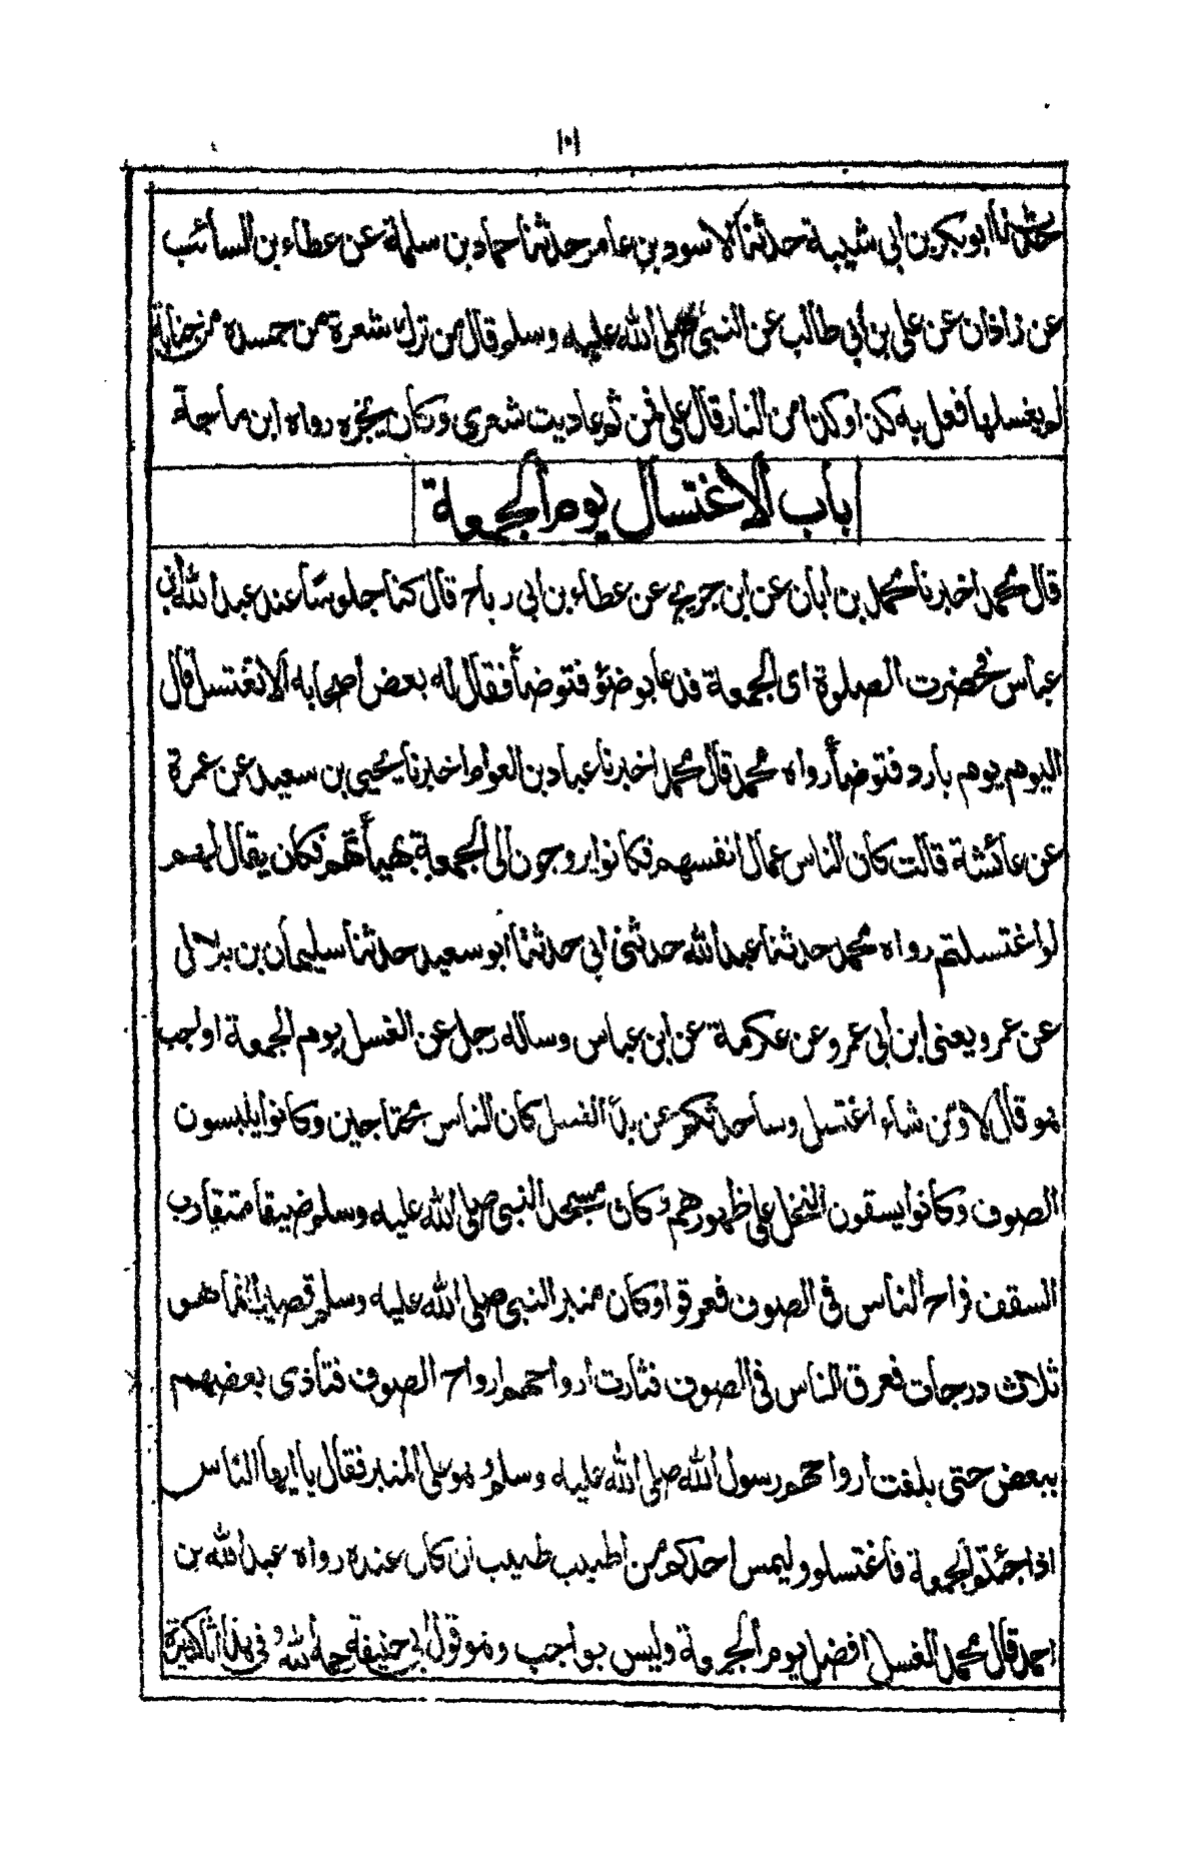 ١٠١
حدثنا ابو بكر بن ابي شيبة حدثنا الاسود بن عامر حدثنا حماد بن سلمة عن عطاء بن السائب
عن زاذان عن علي بن أبي طالب عن النبي صلى الله عليه وسلم قال من ترك شعرة من جسده من جنابة
لم يغسلها فعل به كذا وكذا من النار قال علي فمن ثم عاديت شعري وكان يجزه رواه ابن ماجة
باب الاغتسال يوم الجمعة
قال محمد اخبرنا محمد بن ابان عن ابن جريج عن عطاء بن ابي رباح قال كنا جلوسا عند عبد الله ابن
عباس فحضرت الصلوة اى الجمعة فدعا بوضوؤ فتوضأ فقال له بعض أصحابه ألا تغتسل قال
اليوم يوم بارد فتوضأ رواه محمد قال محمد اخبرنا عباد بن العوام اخبرنا يحيى بن سعيد عن عمرة
عن عائشة قالت كان الناس عمال انفسهم فكانوا يروحون الى الجمعة بهيأتهم فكان يقال لهم
لو اغتسلتم رواه محمد حدثنا عبد الله حدثنى ابي حدثنا ابو سعيد حدثنا سليمان بن بلال
عن عمرو يعنى ابن ابي عمرو عن عكرمة عن ابن عباس وساله رجل عن الغسل يوم الجمعة اواجب
هو قال لا ومن شاء اغتسل وساحدثكم عن بدأ الغسل كان الناس محتاجين وكانوا يلبسون
الصوف وكانوا يسقون النخل على ظهورهم وكان مسجد النبي صلى الله عليه وسلم ضيقا متقارب
السقف فراح الناس في الصوف فعرقوا وكان منبر النبي صلى الله عليه وسلم قصيرا انما هو
ثلاث درجات فعرق الناس في الصوف فثارت ارواحهم ارواح الصوف فتأذى بعضهم
ببعض حتى بلغت ارواحهم رسول الله صلى الله عليه وسلم وهو على المنبر فقال يا ايها الناس
اذا جئتم الجمعة فاغتسلوا وليمس احدكم من أطيب طيب ان كان عنده رواه عبد الله بن
احمد قال محمد الغسل افضل يوم الجمعة وليس بواجب وهو قول ابي حنيفة رحمه الله وفي هذا اثار كثيرة